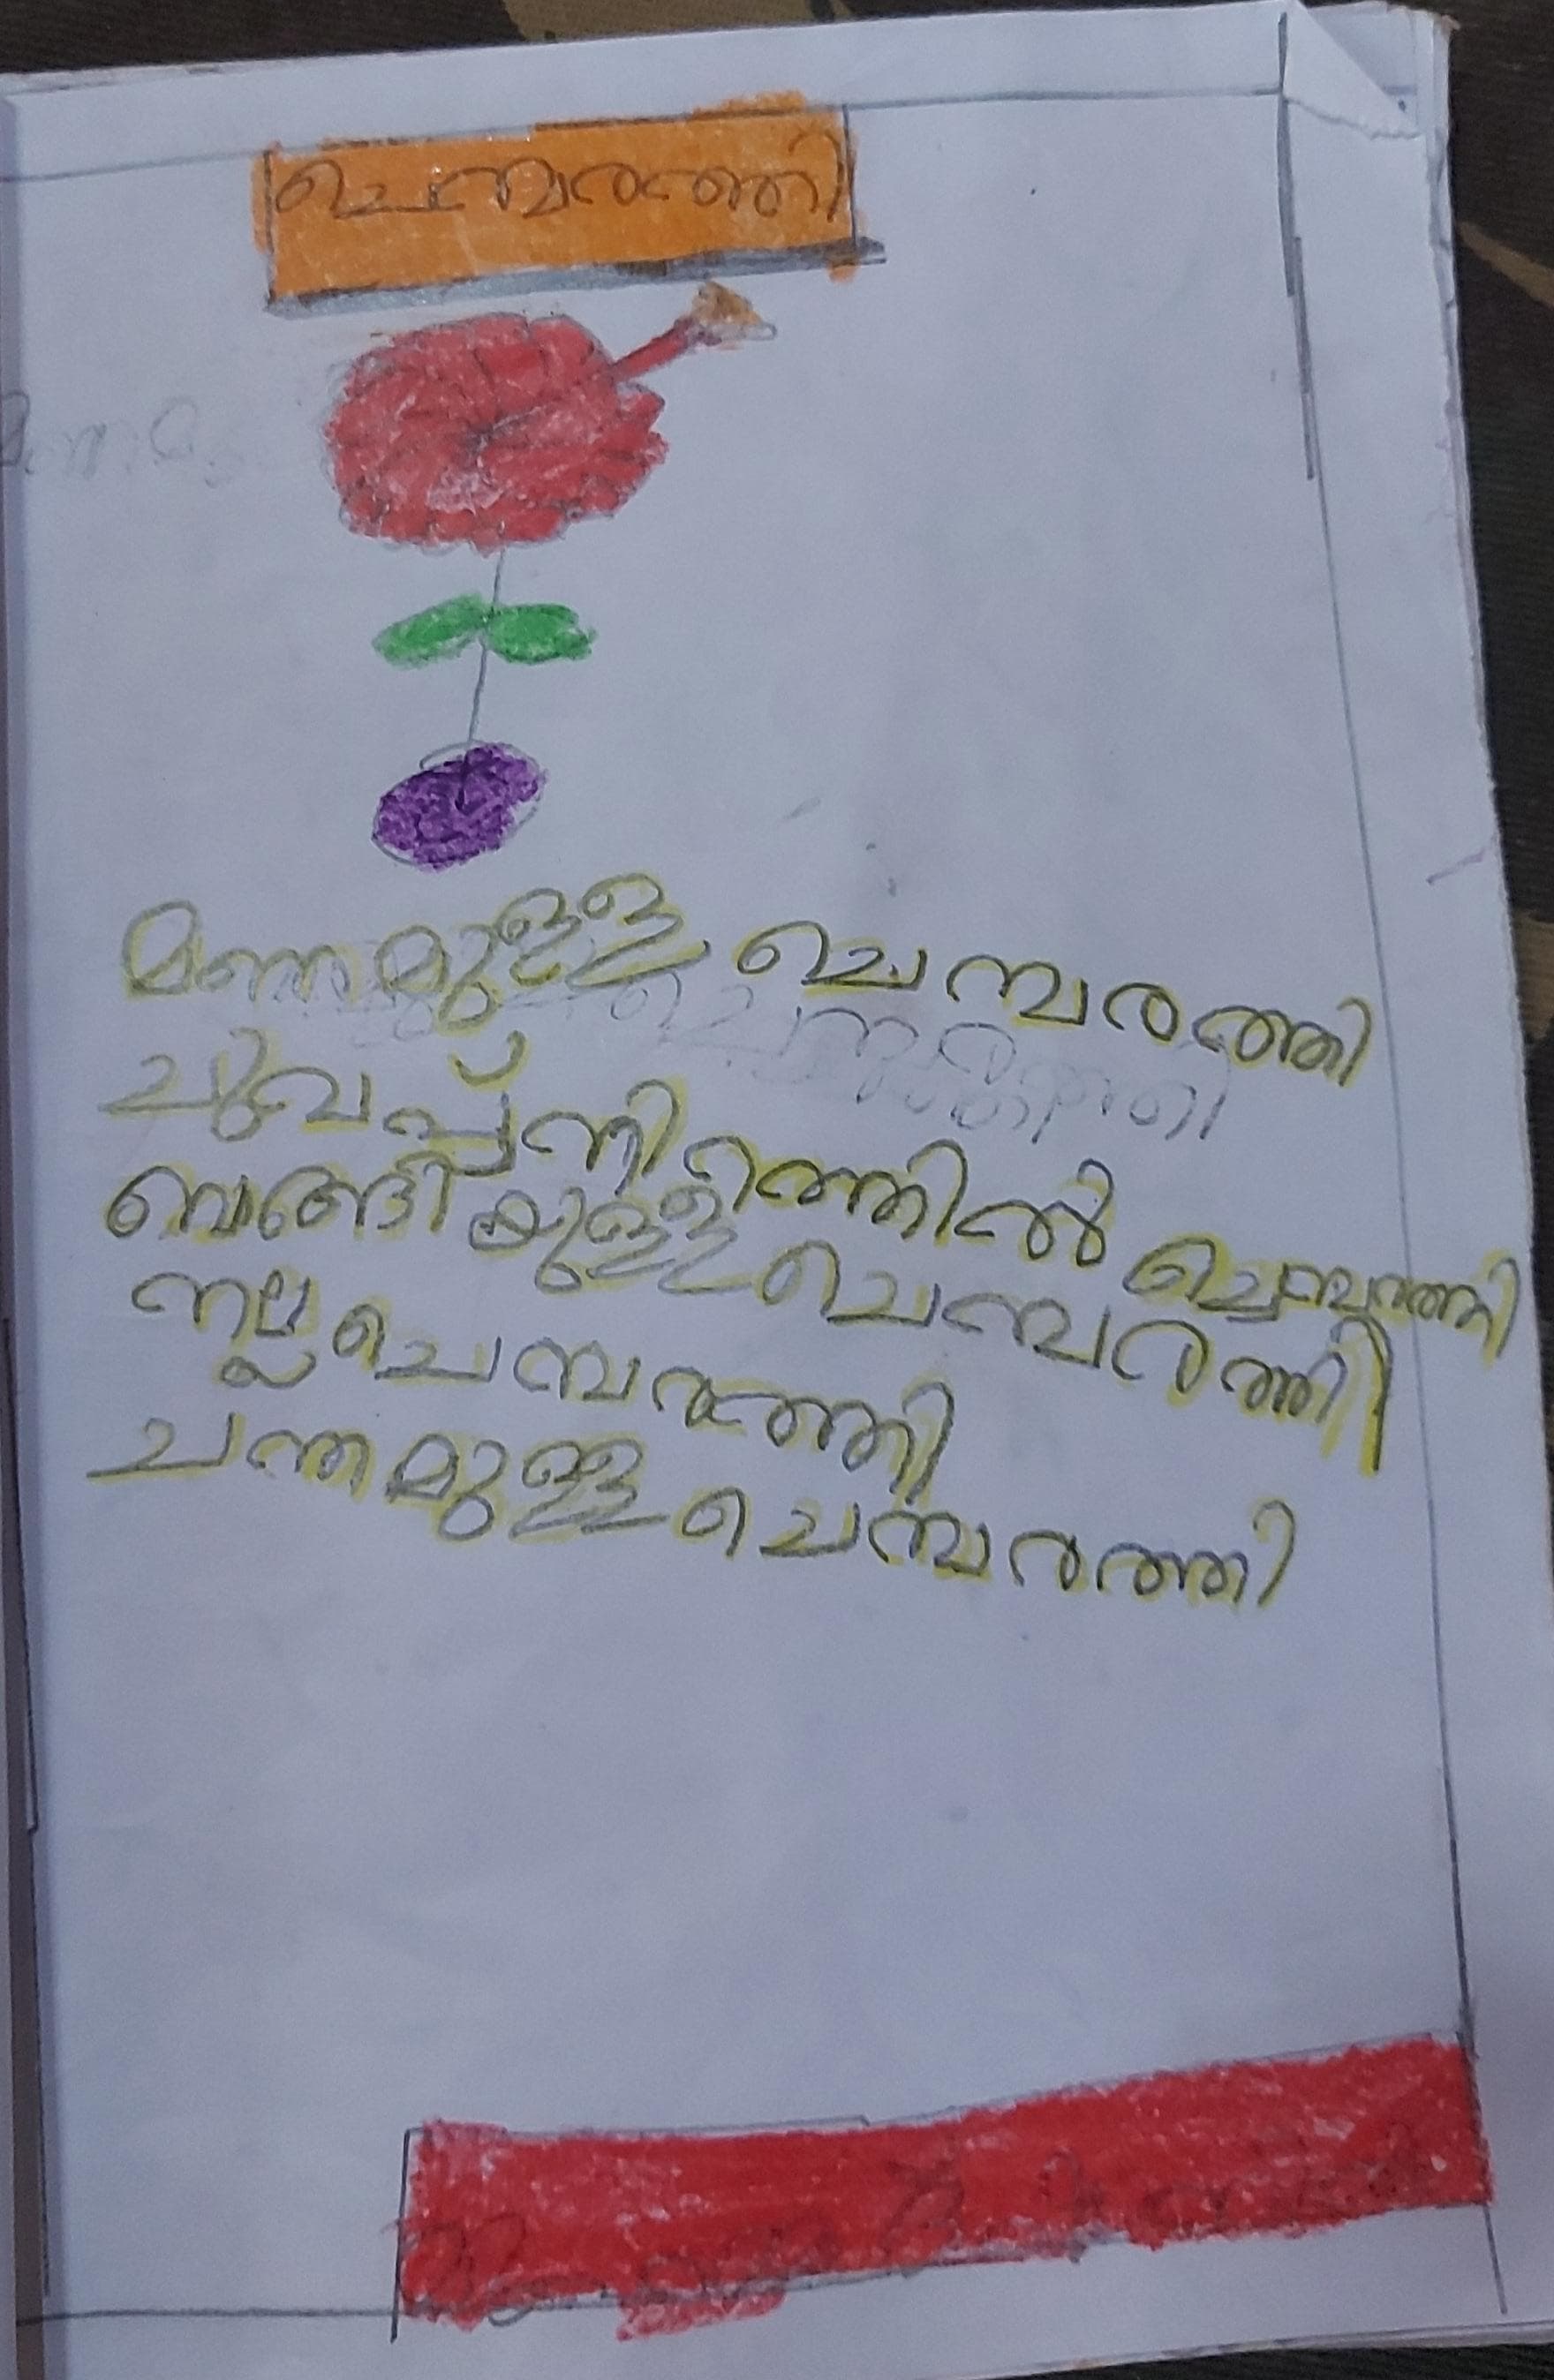 ചെമ്പരത്തി
മണമുള്ള ചെമ്പരത്തി
ചുവപ്പ്നിറത്തിൽ ചെമ്പരത്തി
ബംങ്ങിയുള്ള ചെമ്പരത്തി
നല്ല ചെമ്പരത്തി
ചന്തമുള്ള ചെമ്പരത്തി